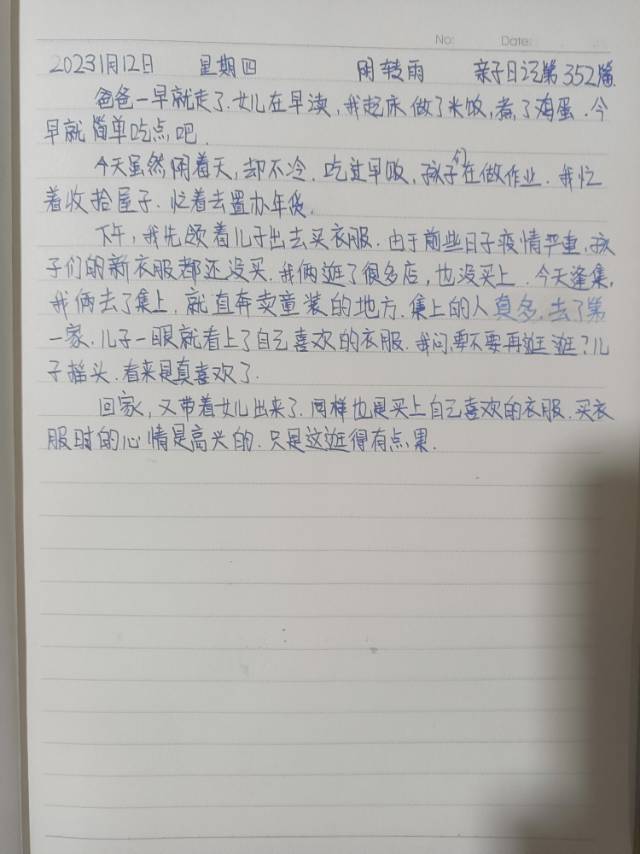 No: Date:
2023 1月12日 星期四 阴转雨 亲子日记第352篇
爸爸一早就走了.女儿在早读,我起床做了米饭,煮了鸡蛋.今
早就简单吃点吧.
今天虽然阴着天,却不冷.吃过早饭,孩子们在做作业.我忙
着收拾屋子.忙着去置办年货.
下午,我先领着儿子出去买衣服.由于前些日子疫情严重,孩
子们的新衣服都还没买.我俩逛了很多店,也没买上.今天逢集,
我俩去了集上.就直奔卖童装的地方.集上的人真多.去了第
一家.儿子一眼就看上了自己喜欢的衣服.我问:要不要再逛逛?儿
子摇头.看来是真喜欢了.
回家,又带着女儿出来了.同样也是买上自己喜欢的衣服.买衣
服时的心情是高兴的.只是这逛得有点累.